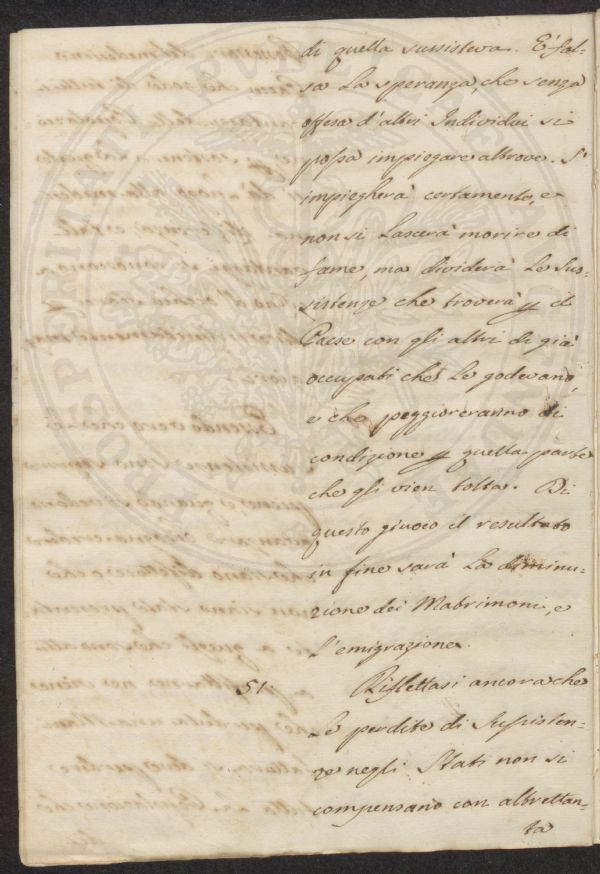 di quella sussisteva. E' fal-
sa La speranza, che senza
offesa d'altri Individui si
possa impiegare altrove. S'
impiegherà certamente, e
non si Lascerà morire di
fame, ma dividerà Le sus-
sistenze che troverà il
Paese con gli altri di già
occupati che Le godevano,
e che peggioreranno di
condizione quella parte
che gli vien tolta. Di
questo giuoco il resultato
in fine sarà La diminu-
zione dei Matrimoni, e
L'emigrazione.
51 Riflettasi ancora che
Le perdite di Sussisten-
ze negli Stati non si
compensano con altrettan-
ta